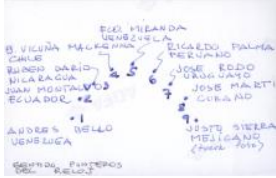 FCO. MIRANDA
VENEZUELA
B. VICUÑA MACKENNA
CHILE
RICARDO PALMA
PERUANO
RUBEN DARIO
NICARAGUA
JOSE RODO
URUGUAYO
JUAN MONTALVO
ECUADOR
JOSE MARTI
CUBANO
4
5
6
3
7
2
8
1
9
ANDRES BELLO
VENEZUELA
JUSTO SIERRA
MEJICANO
SENTIDO PUNTEROS
DEL RELOJ